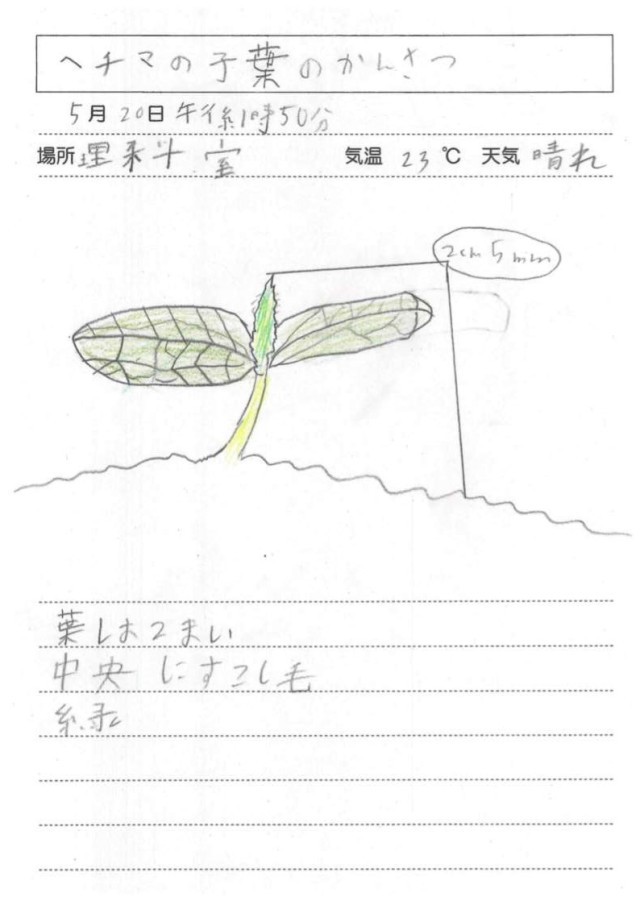 ヘチマの子葉のかんさつ
5月20日 午後1時50分
場所 理科室 気温 23℃ 天気 晴れ
2cm5mm
葉は2まい
中央にすこし毛
緑